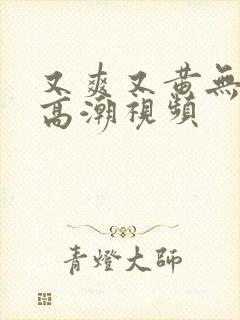 又爽又黄無
高潮視頻
青燈大師